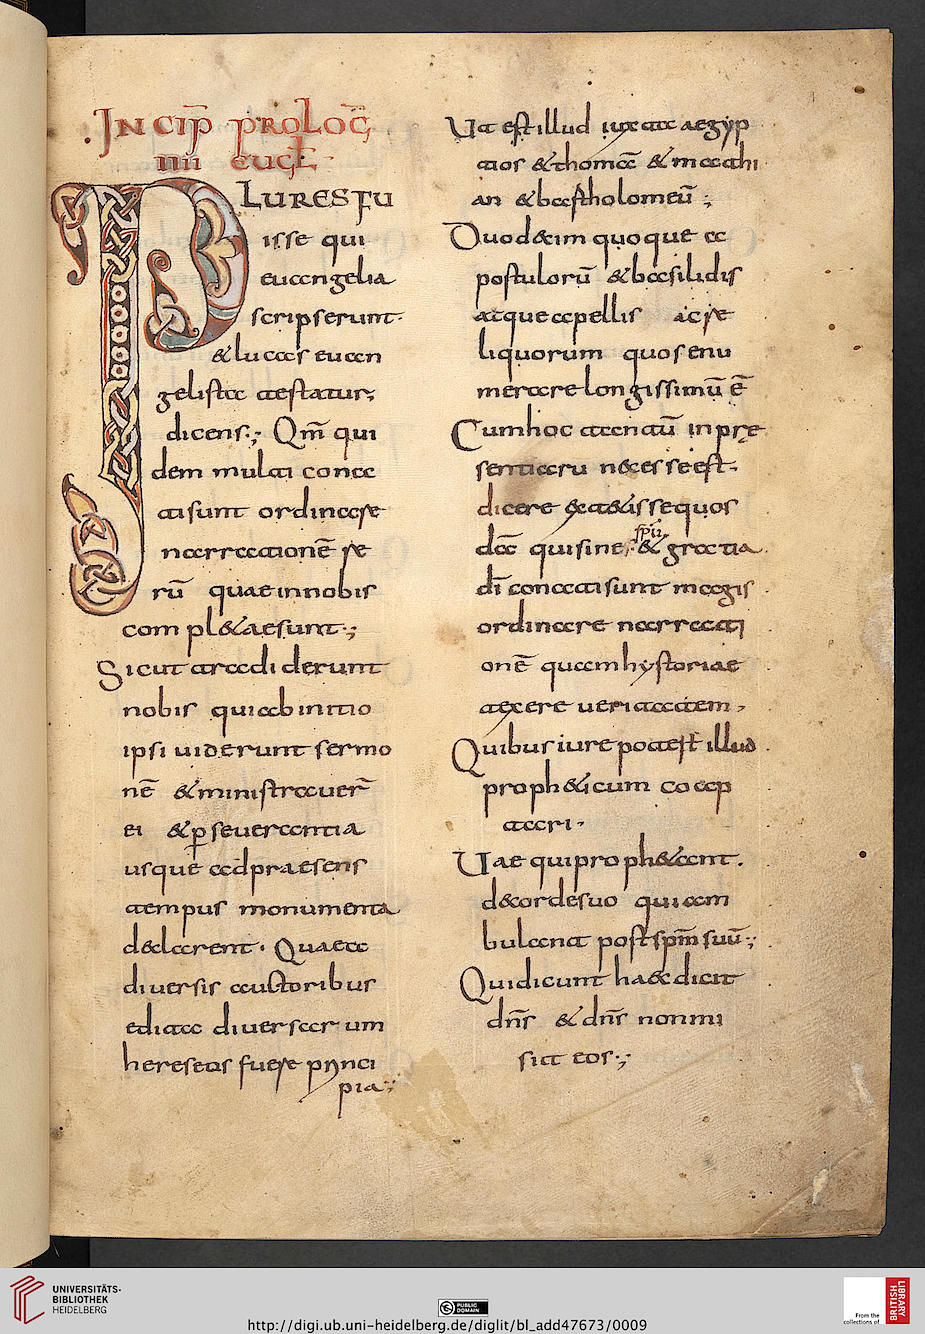 INCIP̄ PROLOG̅
IIII EUGŁ
PLURES FU
isse qui
euangelia
scripserunt·
& lucas euan
gelista testatur;
dicens·; Qm̄ qui
dem multi cona
ti sunt ordinare
narrationē re
rū quae in nobis
completae sunt·;
Sicut tradiderunt
nobis qui ab initio
ipsi uiderunt sermo
nē & ministrauer̄
ei & p̱seuerantia
usque ad praesens
tempus monumenta
declarent· Quae a
diuersis auctoribus
edita diuersarum
hereseos fuere princi
pia·;
Ut est illud iuxta aegyp
tios & thomā & matthi
an & bartholomeū ;
Duodecim quoque a
postulorū & basilidis
atque apellis ac re
liquorum quos enu
merare longissimū ē
Cum hoc tantū in prę
sentiaru necesse est·
dicere extitisse quos
dā qui sine sp̄u & gratia
dī conati sunt magis
ordinare narrati
onē quam hystoriae
texere ueritatem,
Quibus iure potest illud
propheticum coap
tari·
Uae qui prophetant·
de corde suo qui am
bulant post sp̄m suū·;
Qui dicunt haec dicit
dn̄s & dn̄s non mi
sit eos·;
UNIVERSITÄTS-
BIBLIOTHEK
HEIDELBERG
PUBLIC
DOMAIN
http://digi.ub.uni-heidelberg.de/diglit/bl_add47673/0009
From the
collections of
BRITISH
LIBRARY